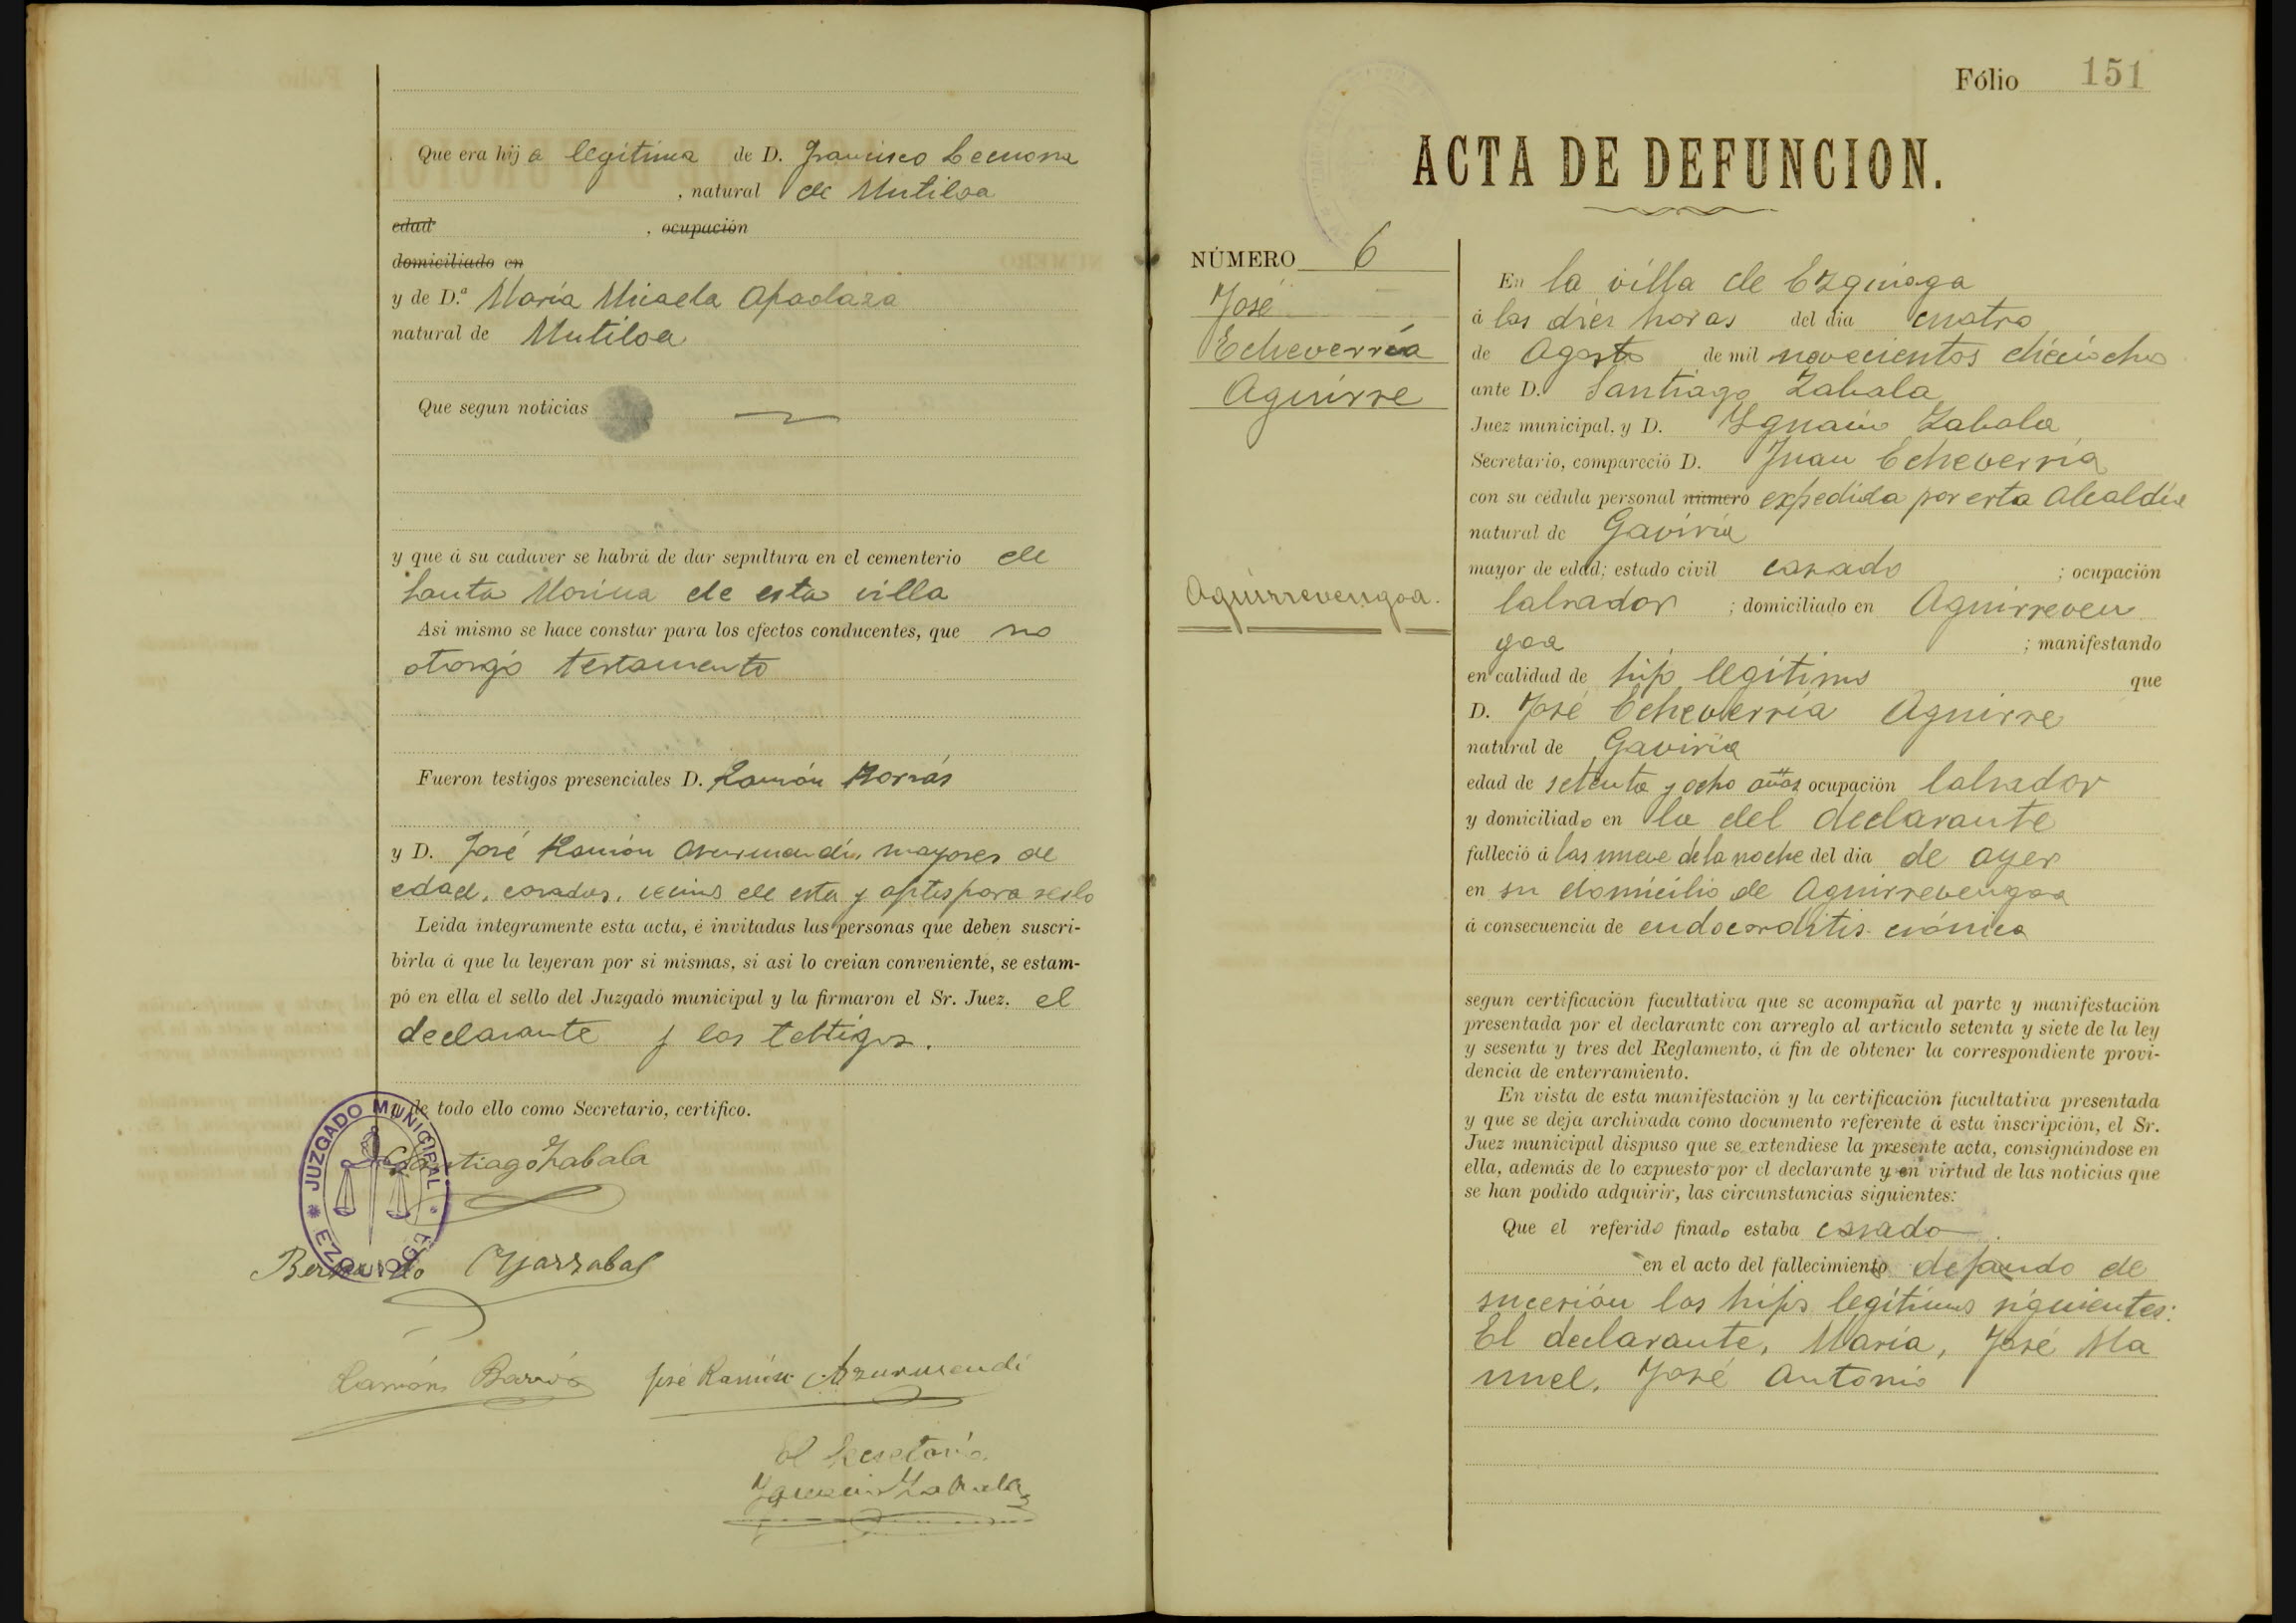 Que era hija legítima de D. Francisco Lecuona
, natural de Mutiloa
edad , ocupación
domiciliado en
y de D.ª María Micaela Apaolaza
natural de Mutiloa
Que segun noticias
y que á su cadaver se habrá de dar sepultura en el cementerio de
Santa Marina de esta villa
Asi mismo se hace constar para los efectos conducentes, que no
otorgó testamento
Fueron testigos presenciales D. Ramón Borrás
y D. José Ramón Azurmendi, mayores de
edad, casados, vecinos de esta y aptos para serlo
Leida integramente esta acta, é invitadas las personas que deben suscri-
birla á que la leyeran por si mismas, si asi lo creian conveniente, se estam-
pó en ella el sello del Juzgado municipal y la firmaron el Sr. Juez. el
declarante y los testigos.
y de todo ello como Secretario, certifico.
JUZGADO MUNICIPAL
Santiago Zabala
Bernardo Oyarzabal
Ramón José Ramón Azurmendi
El Secretario
Ygnacio Zabala
Fólio 151
ACTA DE DEFUNCION.
NÚMERO 6
José
Echeverría
Aguirre
Aguirrevengoa.
En la villa de Ezquioga
á las diez horas del dia cuatro
de Agosto de mil novecientos dieciocho
ante D. Santiago Zabala
Juez municipal, y D. Ygnacio Zabala
Secretario, compareció D. Juan Echeverría
con su cédula personal número expedida por esta Alcaldía
natural de Gaviria
mayor de edad; estado civil casado ; ocupación
labrador ; domiciliado en Aguirreven
goa ; manifestando
en calidad de hijo legítimo que
D. José Echeverría Aguirre
natural de Gaviria
edad de setenta y ocho años ocupación labrador
y domiciliado en la del declarante
falleció á las nueve de la noche del dia de ayer
en su domicilio de Aguirrevengoa
á consecuencia de endocarditis crónica
segun certificación facultativa que se acompaña al parte y manifestación
presentada por el declarante con arreglo al artículo setenta y siete de la ley
y sesenta y tres del Reglamento, á fin de obtener la correspondiente provi-
dencia de enterramiento.
En vista de esta manifestación y la certificación facultativa presentada
y que se deja archivada como documento referente á esta inscripción, el Sr.
Juez municipal dispuso que se extendiese la presente acta, consignándose en
ella, además de lo expuesto por el declarante y en virtud de las noticias que
se han podido adquirir, las circunstancias siguientes:
Que el referido finado estaba casado
en el acto del fallecimiento dejando de
sucesión los hijos legítimos siguientes:
El declarante, María, José Ma
nuel, José Antonio